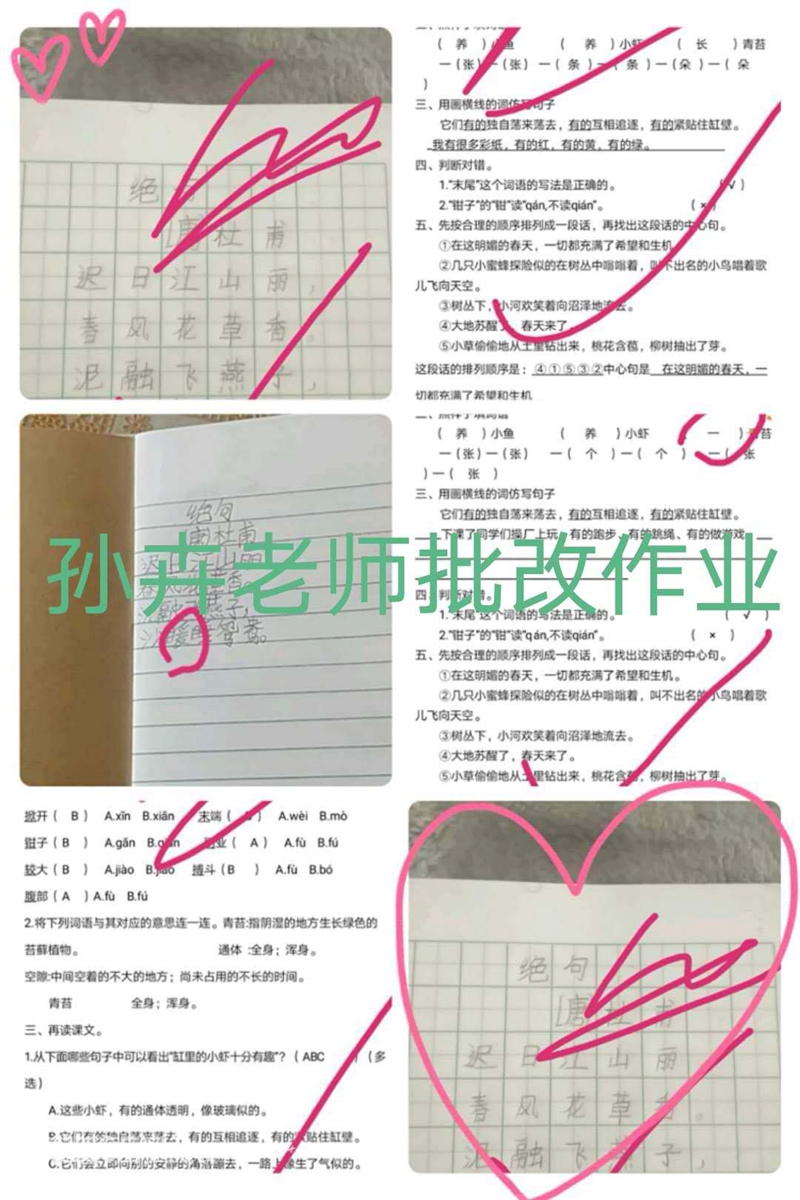 绝句
[唐]杜甫
迟日江山丽，
春风花草香。
泥融飞燕子，
(养)小鱼 (养)小虾 (长)青苔
一(张)一(张) 一(条)一(条)一(朵)一(朵
)
三、用画横线的词仿写句子
它们有的独自荡来荡去，有的互相追逐，有的紧贴住缸壁。
我有很多彩纸，有的红，有的黄，有的绿。
四、判断对错。
1.“末尾”这个词语的写法是正确的。 (√)
2.“钳子”的“钳”读“qán,不读qián”。 (×)
五、先按合理的顺序排列成一段话，再找出这段话的中心句。
①在这明媚的春天，一切都充满了希望和生机。
②几只小蜜蜂探险似的在树丛中嗡嗡着，叫不出名的小鸟唱着歌
儿飞向天空。
③树丛下，小河欢笑着向沼泽地流去。
④大地苏醒了，春天来了。
⑤小草偷偷地从土里钻出来，桃花含苞，柳树抽出了芽。
这段话的排列顺序是：④①⑤③②中心句是 在这明媚的春天，一
切都充满了希望和生机
孙卉老师批改作业
绝句
杜甫
迟日江山丽
(养)小鱼 (养)小虾 一 )青苔
一(张)一(张) 一(个)一(个) 一(张
)一(张)
三、用画横线的词仿写句子
它们有的独自荡来荡去，有的互相追逐，有的紧贴住缸壁。
下课了同学们操厂上玩、有的跑步、有的跳绳、有的做游戏
四、判断对错。
1.“末尾”这个词语的写法是正确的。 (√)
2.“钳子”的“钳”读“qán,不读qián”。 (×)
五、先按合理的顺序排列成一段话，再找出这段话的中心句。
①在这明媚的春天，一切都充满了希望和生机。
②几只小蜜蜂探险似的在树丛中嗡嗡着，叫不出名的小鸟唱着歌
儿飞向天空。
③树丛下，小河欢笑着向沼泽地流去。
④大地苏醒了，春天来了。
⑤小草偷偷地从土里钻出来，桃花含苞，柳树抽出了芽。
掀开(B) A.xīn B.xiān 末端( ) A.wèi B.mò
钳子(B) A.gǎn B.qián 副业(A) A.fù B.fú
较大(B) A.jiào B.jiǎo 搏斗(B) A.fù B.bó
腹部(A)A.fù B.fú
2.将下列词语与其对应的意思连一连。青苔:指阴湿的地方生长绿色的
苔藓植物。 通体:全身；浑身。
空隙:中间空着的不大的地方；尚未占用的不长的时间。
青苔 全身；浑身。
三、再读课文。
1.从下面哪些句子中可以看出“缸里的小虾十分有趣”？(ABC )(多
选)
A.这些小虾，有的通体透明，像玻璃似的。
B.它们有的独自荡来荡去，有的互相追逐，有的紧贴住缸壁。
C.它们会立即向别的安静的角落蹦去，一路上像生了气似的。
绝句
[唐]杜甫
迟日江山丽
春风花草香。
泥融飞燕子，